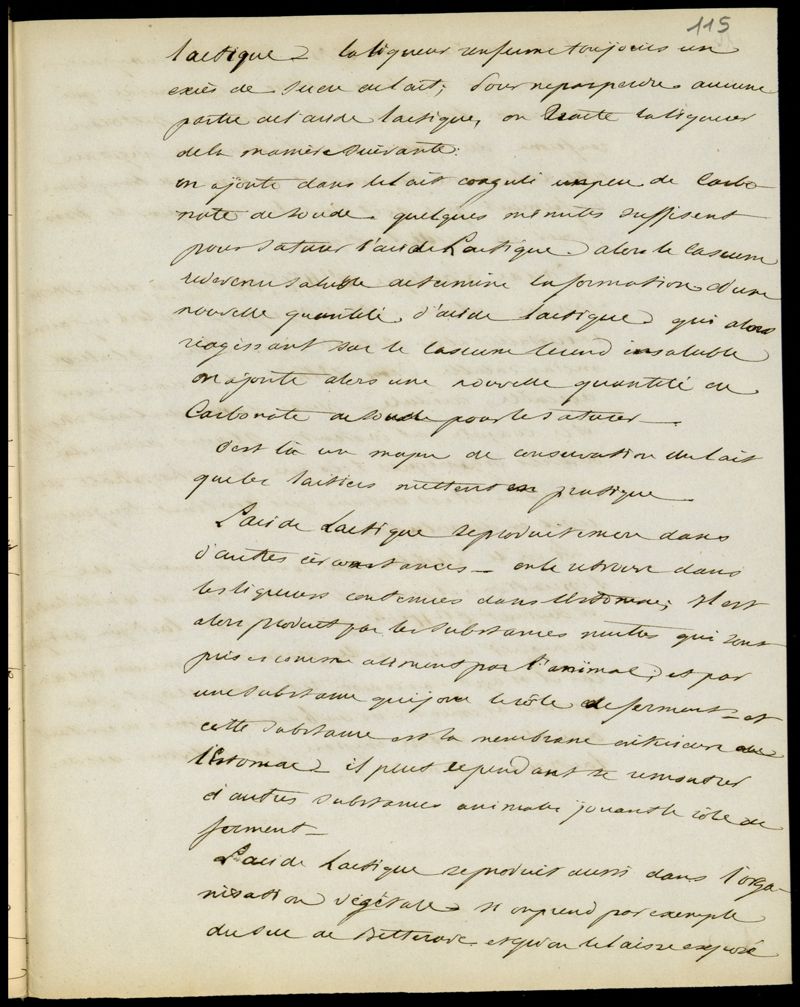 115
lactique – la liqueur renferme toujours un
excès de sucre de lait; Pour ne pas perdre aucune
partie de l'acide lactique, on traite la liqueur
de la manière suivante:
on ajoute dans le lait coagulé un peu de Carbo-
nate de soude. quelques minutes suffisent
pour saturer l'acide Lactique. alors le caseum
redevenu soluble determine la formation d'une
nouvelle quantité d'acide lactique qui alors
réagissant sur le caseum le rend insoluble
on ajoute alors une nouvelle quantité de
Carbonate de soude pour le saturer –
c'est là un moyen de conservation du lait
que les laitiers mettent en pratique –
L'acide Lactique se produit encore dans
d'autres circonstances – on le retrouve dans
les liqueurs contenues dans l'estomac; il est
alors produit par les substances neutres qui sont
prises comme aliment par l'animal; et par
une substance qui joue le rôle de ferment – et
cette substance est la membrane intérieure de
l'Estomac – il peut cependant se rencontrer
d'autres substances animales jouant le rôle de
ferment –
L'acide Lactique se produit aussi dans l'orga-
nisation végétale – si on prend par exemple
du suc de Betterave et qu'on le laisse exposé